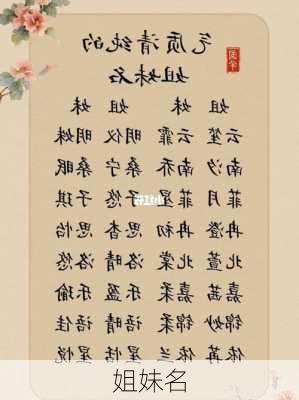 气质清纯的
姐妹名
姐 妹 姐 妹
云笙 云霏 明仪 明姝
南汐 南乔 桑宁 桑眠
菲月 菲星 子悠 子琪
冉澄 冉初 思杳 思怡
北萱 北棠 洛晴 洛悠
嘉茜 嘉秉 乐盈 乐瑜
锦妙 锦秉 语晴 语佳
依苒 依兰 星恬 星悦
姐妹名